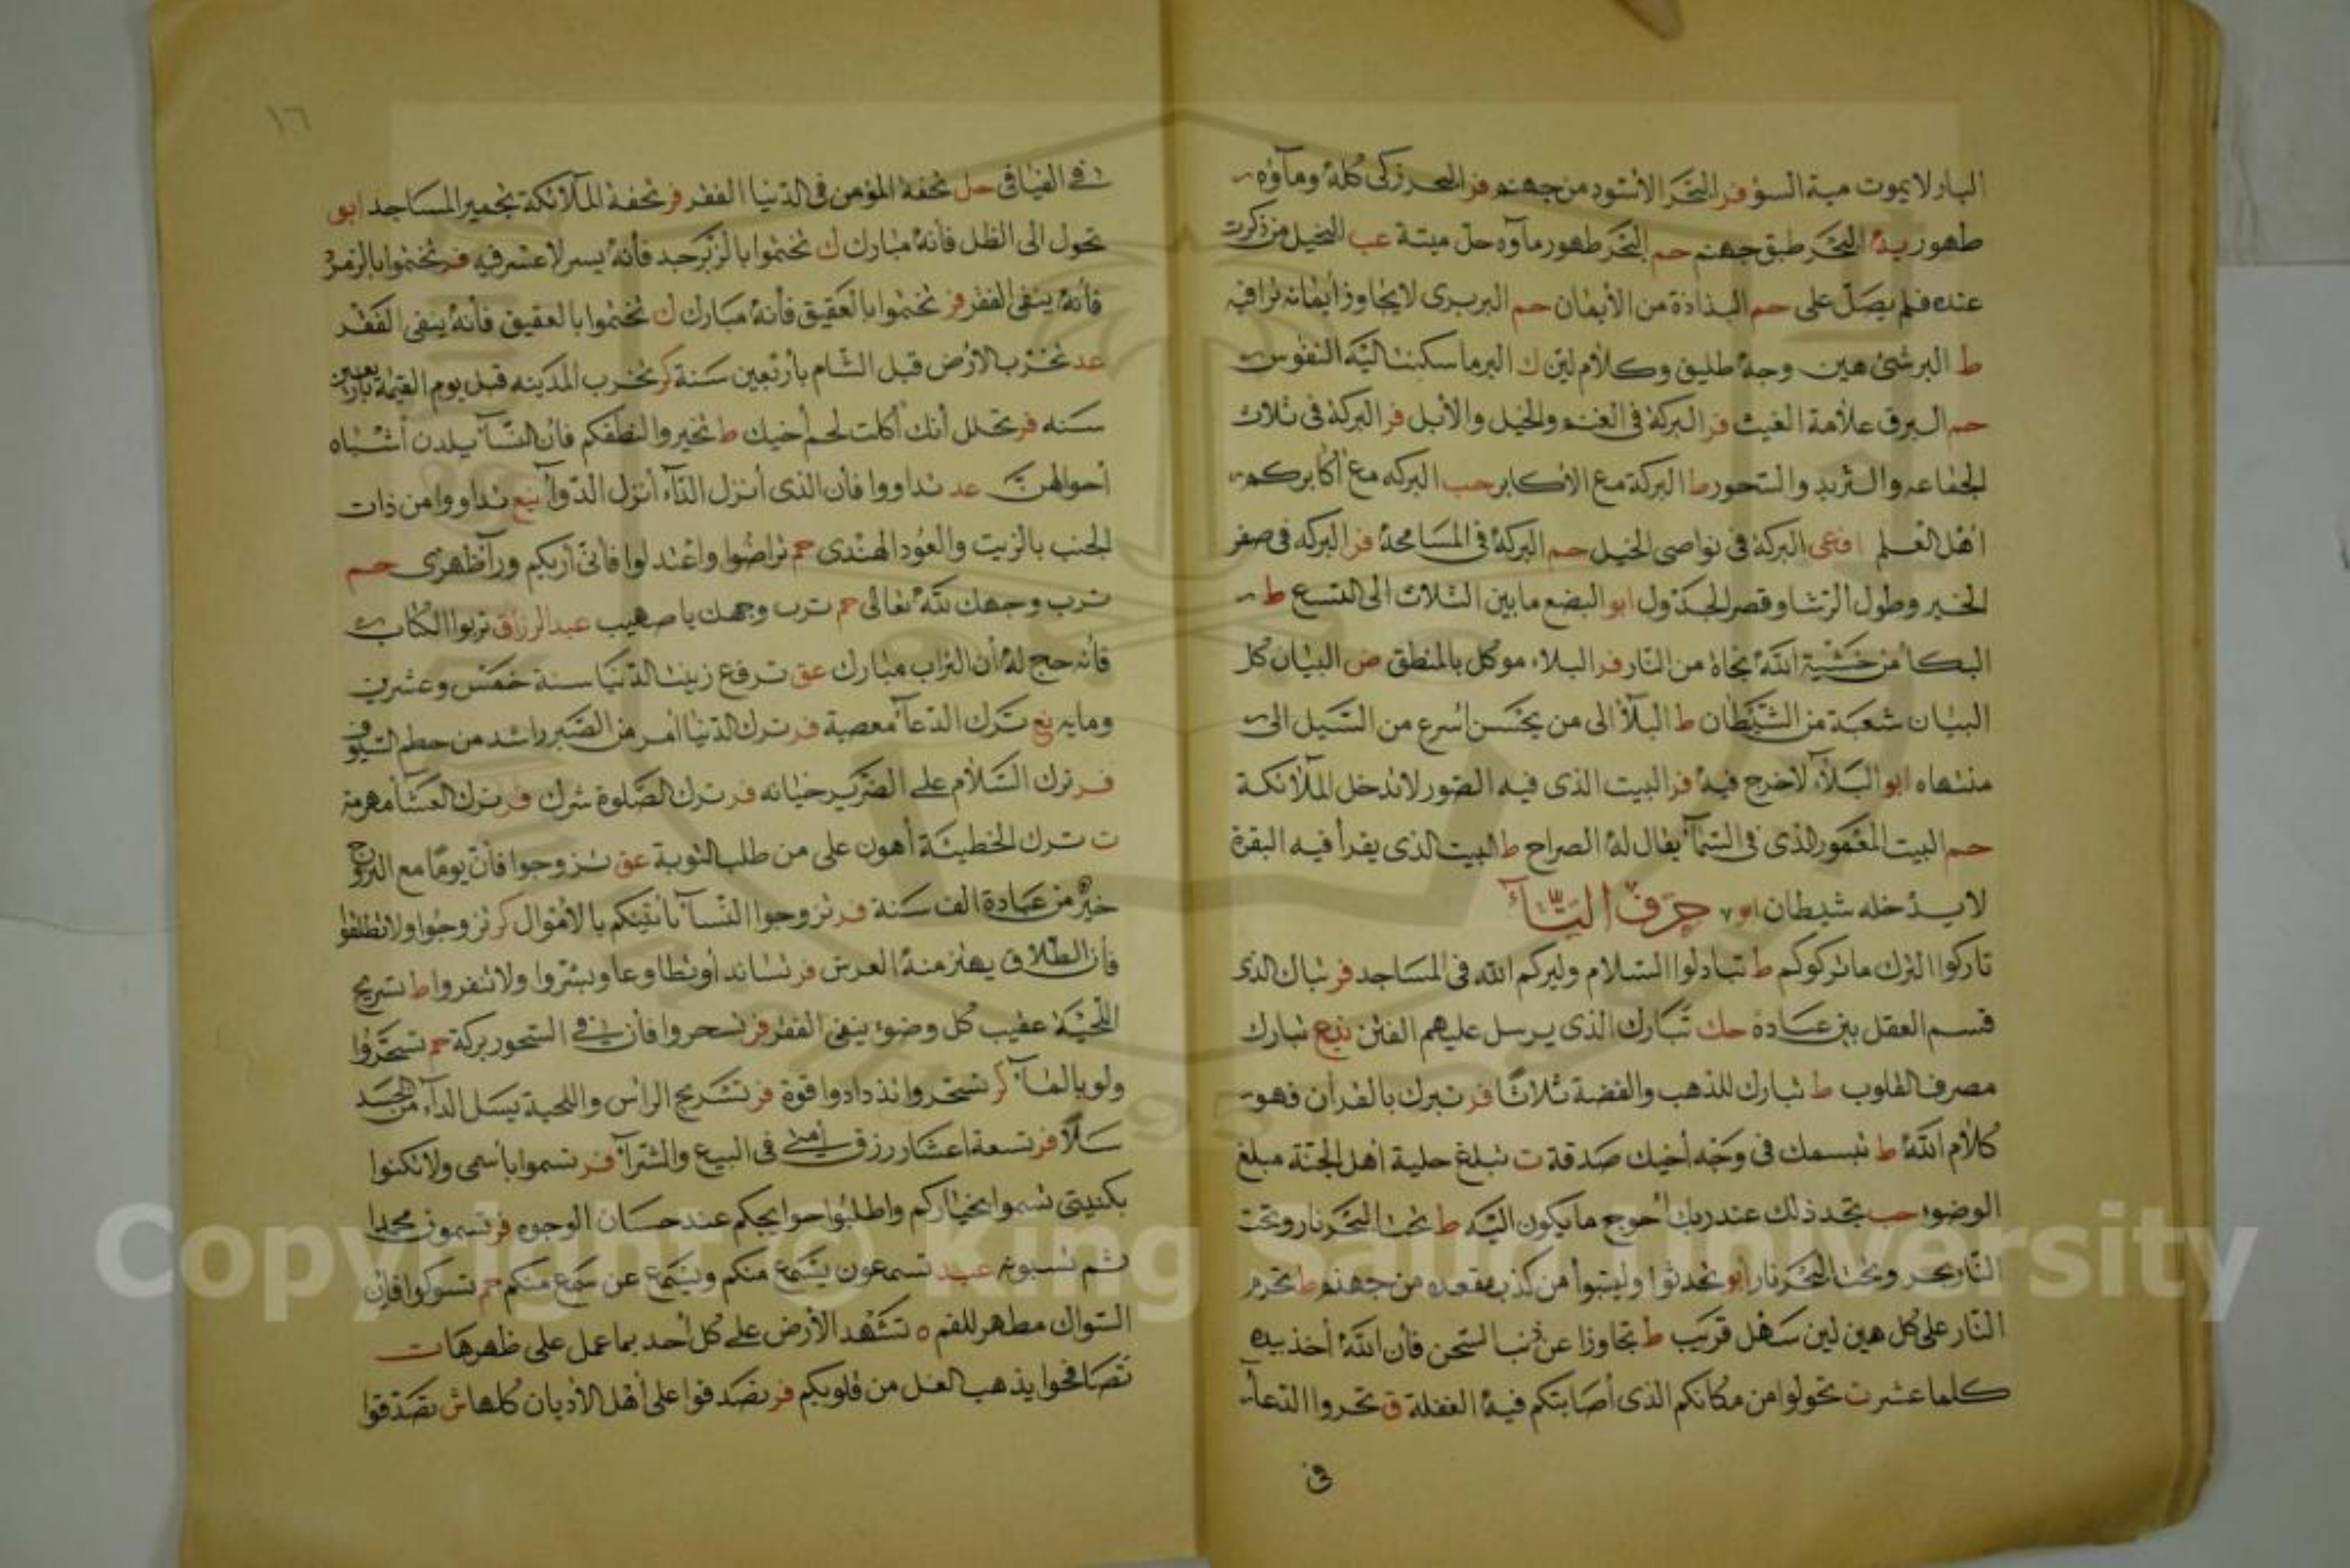 البار لا يموت ميتة السؤ فر البحر الأسود من جهنم فر البحر زكى كله وماؤه
طهور يد البحر طبق جهنم حم البحر طهور ماؤه حل ميتة عب البخيل من ذكرت
عنده فلم يصل على حم البذاذة من الأيمان حم البربرى لا يجاوز أيمانه تراقيه
ط البر شئ هين وجه طليق وكلام لين ك البر ما سكنت اليه النفوس
حم البرق علامة الغيث فر البركة فى الغنم والخيل والأبل فر البركة فى ثلاث
الجماعه والثريد والسحور ط البركة مع الاكابر حب البركه مع أكابركم
اهل العلم افعى البركة فى نواصى الخيل حم البركة فى المسامحة فر البركه فى صغر
الخبر وطول الرشا وقصر الجدول ابو البضع ما بين الثلاث الى التسع ط
البكا من خشية الله نجاة من النار فر البلاء موكل بالمنطق ض البيان كل
البيان شعبة من الشيطان ط البلأ الى من يحسن اسرع من السيل الى
منتهاه ابو البلاء لاخرج فيه فر البيت الذى فيه الصور لا تدخل الملائكة
حم البيت المعمور الذى فى السمآ يقال له الصراح ط البيت الذى يقرأ فيه البقرة
لا يدخله شيطان حرف التآء
تاركوا الترك ما تركوكم ط تبادلوا السلام وليركم الله فى المساجد فر تبارك الذى
قسم العقل بين عبادة حك تبارك الذى يرسل عليهم الفتن نع تبارك
مصرف القلوب ط تبارك للذهب والفضة ثلاثا فر تبرك بالقرأن فهو
كلام الله ط تبسمك فى وجه أخيك صدقة ت تبلغ حلية أهل الجنة مبلغ
الوضوء حب تجد ذلك عند ربك أحوج ما يكون اليه ط تحت البحر نار وتحت
النار بحر وتحت البحر نار ابو تحدثوا وليتبوأ من كذب مقعده من جهنم ط تحرم
النار على كل هين لين سهل قريب ط تجاوزا عن ذنب السخى فأن الله أخذ بيده
كلما عشر ت تحولوا من مكانكم الذى أصابتكم فيه الغفلة ق تحروا الدعآ
فى
١٦
فى الفيافى حل تحفة المؤمن فى الدنيا الفقر فر تحفة الملآئكة تجمير المساجد ابو
تحول الى الظل فأنه مبارك ك تختموا بالزبرجد فأنه يسر لا عسر فيه فر تختموا بالزمرد
فأنه ينفى الفقر فر تختموا بالعقيق فأنه مبارك ك تختموا بالعقيق فأنه ينفى الفقر
عد تخرب الارض قبل الشام بأربعين سنة كر تخرب المدينه قبل يوم القيمة بأربعين
سنه فر تخلل أنك أكلت لحم أخيك ط تخيروا لنطفكم فان النسآ يلدن أشباه
أحوالهن عد تداووا فأن الذى أنزل الدآء أنزل الدوآ نع تداووا من ذات
الجنب بالزيت والعود الهندى حم تراضوا واعتدلوا فأنى أريكم ورآ ظهرى حم
ترب وجهك لله تعالى حم ترب وجهك يا صهيب عبد الرزاق تربوا الكتاب
فأنه حج له أن التراب مبارك عق ترفع زينت الدنيا سنة خمس وعشرين
ومايه نع ترك الدعآ معصية فر ترك الدنيا أمر من الصبر واشد من حطم السيوف
فر ترك السلام على الضرير خيانه فر ترك الصلوة شرك فر ترك العشآ مهرمة
ت ترك الخطيئة أهون على من طلب التوبة عق تزوجوا فأن يوما مع التزوج
خير من عبادة الف سنة فر تزوجوا النسآ يأتينكم بالأموال كر تزوجوا ولا تطلقوا
فأن الطلاق يهتز منه العرش فر تساندا وتطاوعا وبشروا ولا تنفروا ط تسريح
اللحية عقيب كل وضوء ينفى الفقر فر تسحروا فأن فى السحور بركة حم تسحروا
ولو بالمآ كر تسحروا تزدادوا قوة فر تسريح الرأس واللحية يسل الدآء من الجسد
سلا فر تسعة اعشار رزق أمتى فى البيع والشرآ فر تسموا بأسمى ولا تكنوا
بكنيتى تسموا بخياركم واطلبوا حوايجكم عند حسان الوجوه فر تسمون محمدا
ثم تسبونه عبد تسمعون يسمع منكم ويسمع عن سمع منكم حم تسوكوا فإن
السواك مطهر للفم ه تشهد الأرض على كل أحد بما عمل على ظهرها ت
تصافحوا يذهب الغل من قلوبكم فر تصدقوا على أهل الأديان كلها ش تصدقوا
Copyright © King Saud University